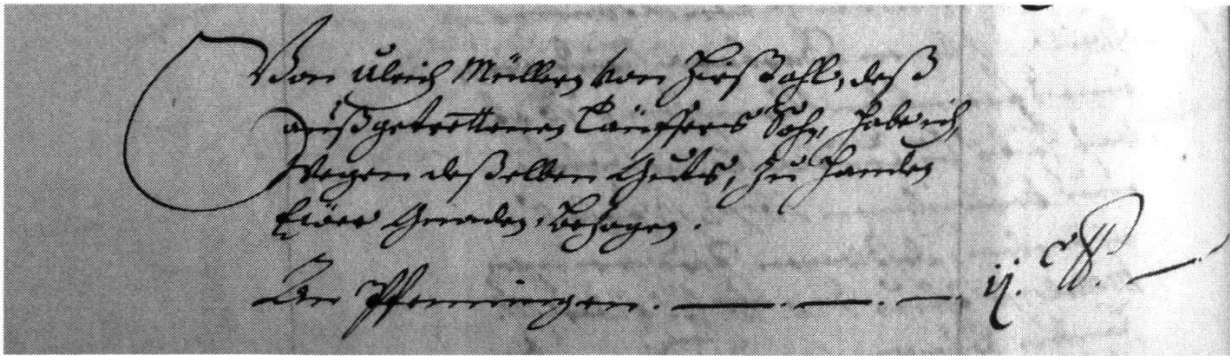 Von Ulrich Müllern von Hirßahl, deß
außgetrettenen Täuffers Sohn, hab ich
Wegen deßelben Guts, zu handen
Eüwer Gnaden, bezogen.
An Pfenningen. — — — ij. c ℔. —